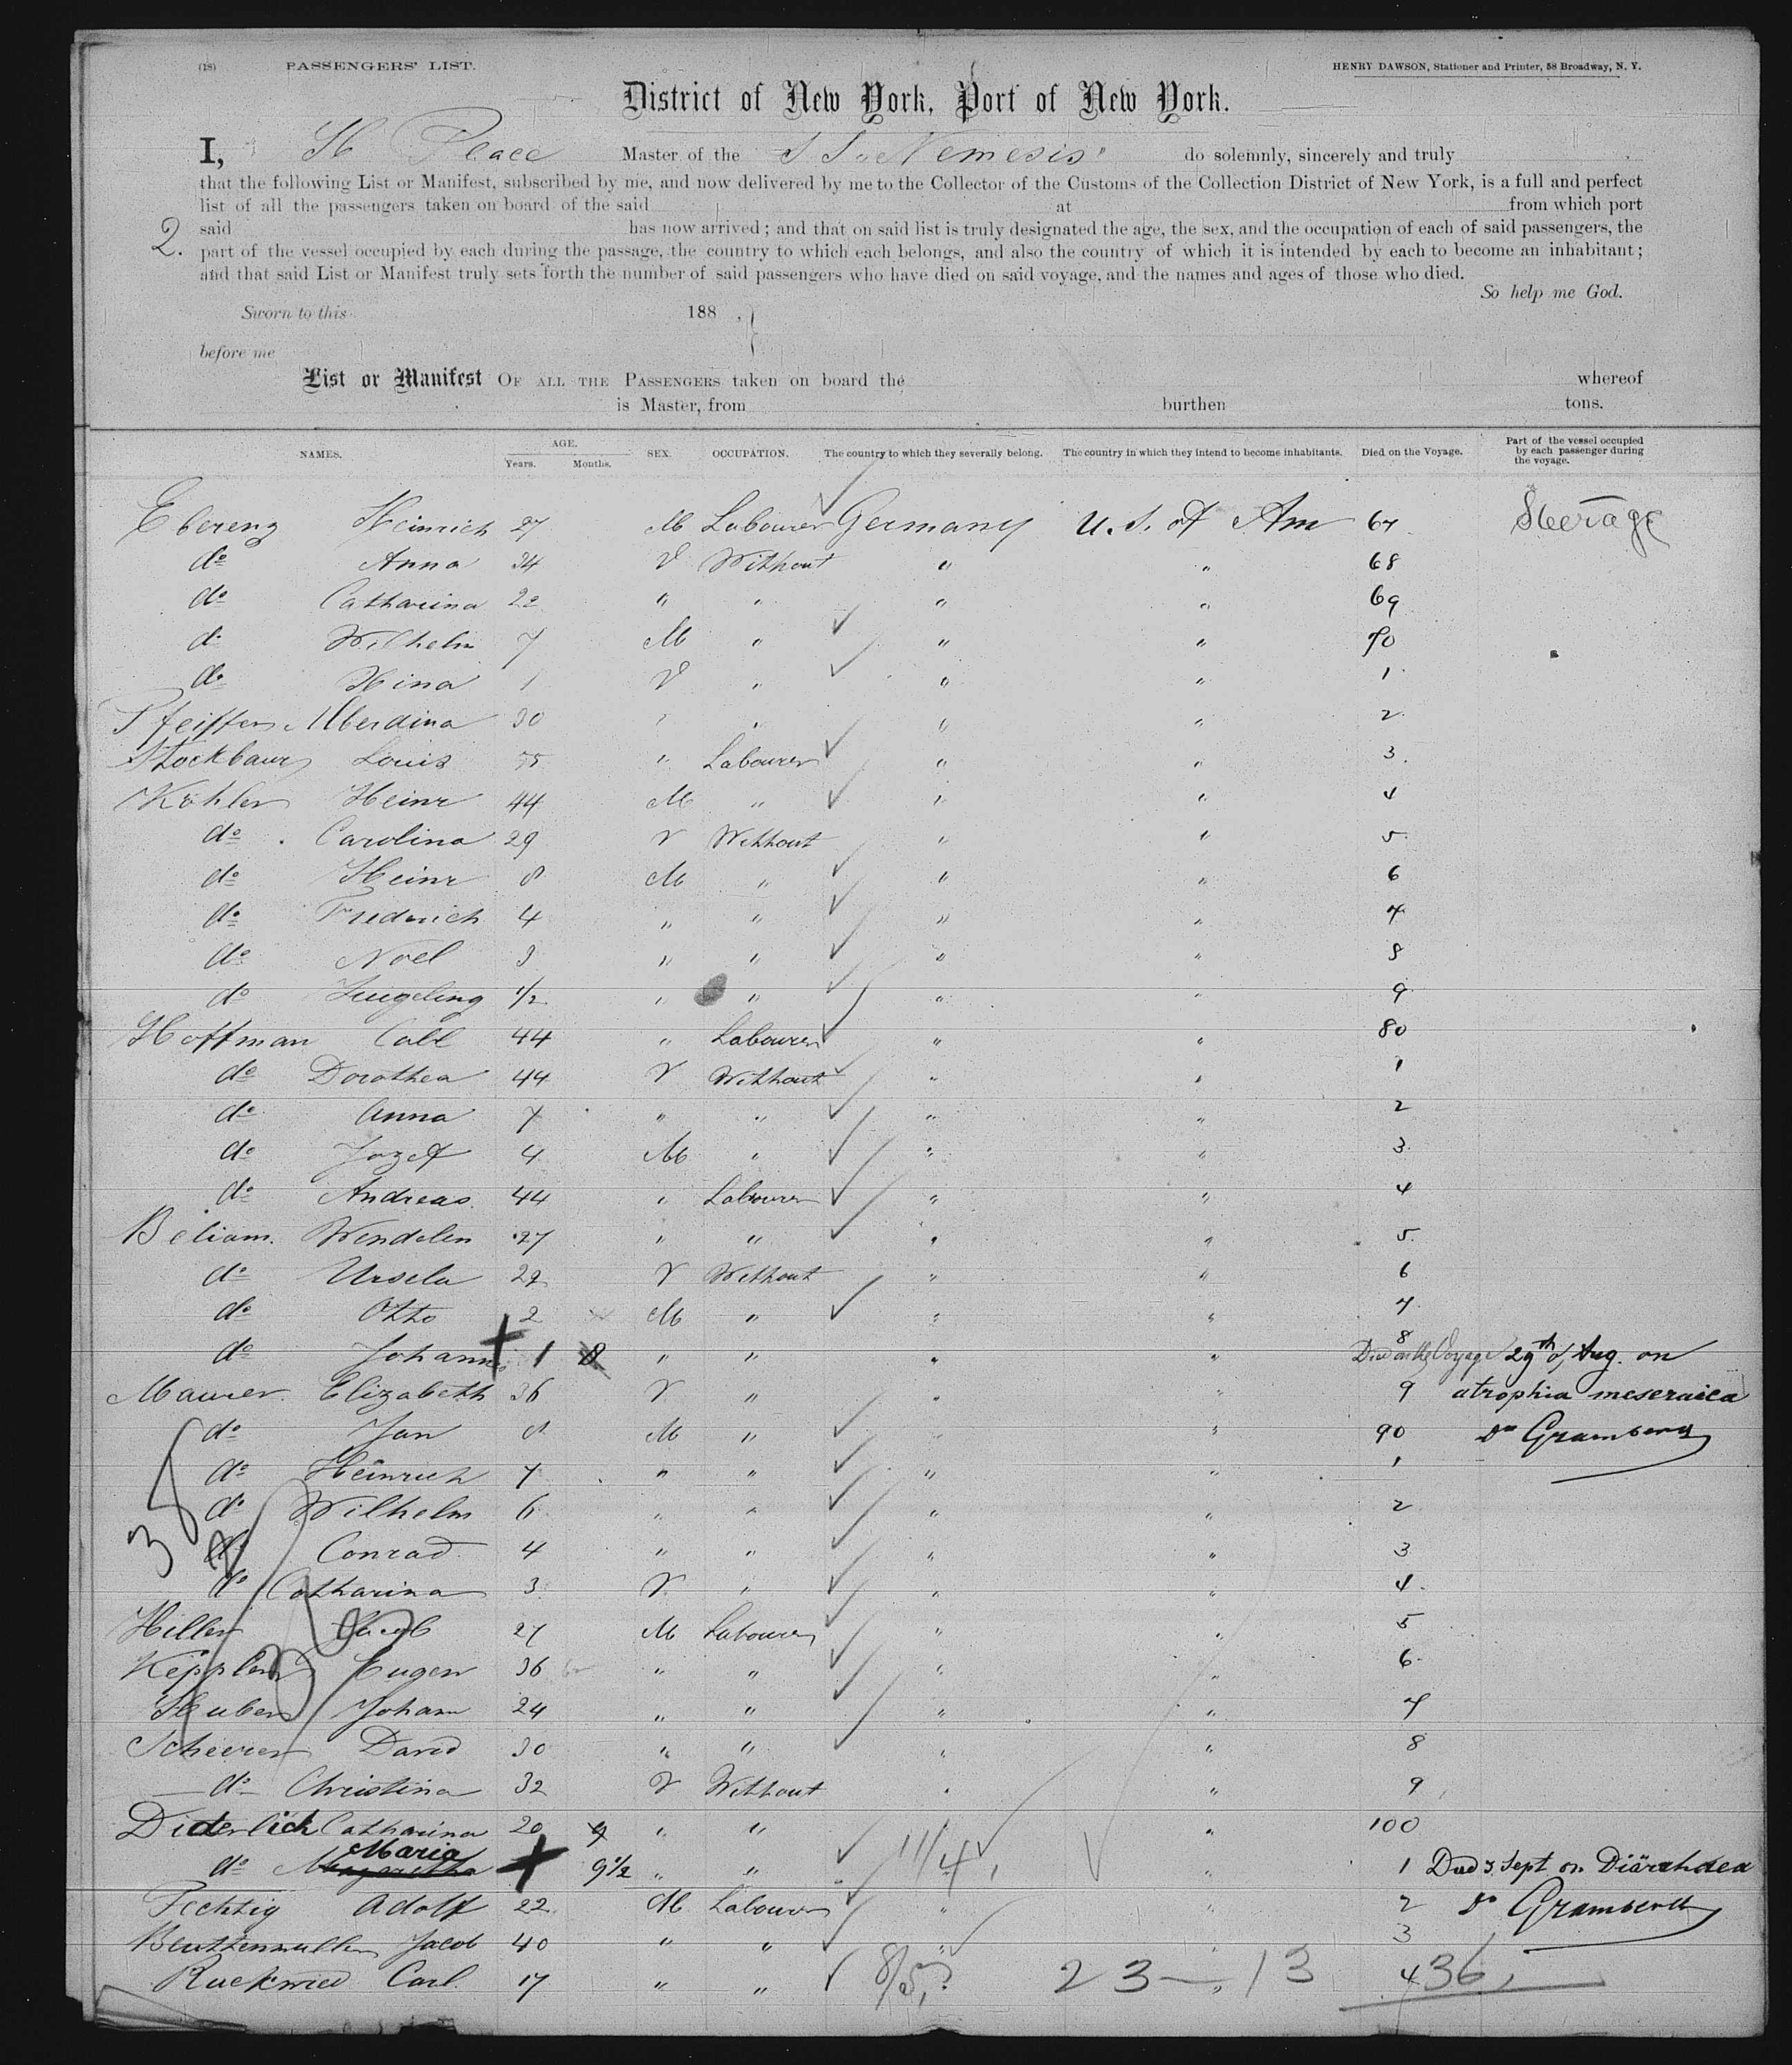 (18) PASSENGERS' LIST. HENRY DAWSON, Stationer and Printer, 58 Broadway, N. Y.
District of New York, Port of New York.
I, Peace Master of the S S "Nemesis" do solemnly, sincerely and truly
that the following List or Manifest, subscribed by me, and now delivered by me to the Collector of the Customs of the Collection District of New York, is a full and perfect
list of all the passengers taken on board of the said at from which port
said has now arrived; and that on said list is truly designated the age, the sex, and the occupation of each of said passengers, the
2. part of the vessel occupied by each during the passage, the country to which each belongs, and also the country of which it is intended by each to become an inhabitant;
and that said List or Manifest truly sets forth the number of said passengers who have died on said voyage, and the names and ages of those who died.
So help me God.
Sworn to this 188 , }
before me
List or Manifest OF ALL THE PASSENGERS taken on board the whereof
is Master, from burthen tons.
NAMES. AGE. Years. Months. SEX. OCCUPATION. The country to which they severally belong. The country in which they intend to become inhabitants. Died on the Voyage. Part of the vessel occupied by each passenger during the voyage.
Eberenz Heinrich 27 M Labourer Germany U. S. of Am 67 Steerage
do Anna 34 V Without " " 68
do Catharina 22 " " " " 69
do Wilhelm 7 M " " " 70
do Nina 1 V " " " 1
Pfeiffer Alberdina 30 " " " " 2
Stockbaur Louis 55 " Labourer " " 3
Köhler Heinr 44 M " " " 4
do Carolina 29 V Without " " 5
do Heinr 8 M " " " 6
do Fredrich 4 " " " " 7
do Noel 3 " " " " 8
do 1/2 " " " " 9
Hoffman Call 44 " Labourer " " 80
do Dorothea 44 V Without " " 1
do Anna 7 " " " " 2
do Jozef 4 M " " " 3
do Andreas 44 " Labourer " " 4
Beliam Wendelin 27 " " " " 5
do Ursela 29 V Without " " 6
do Otto 2 M " " " 7
do Johann + 1 8 " " " " 8 Died on the Voyage 29th of Aug. on
Maurer Elizabeth 36 V " " " 9 atrophia meseraica
do Jan 8 M " " " 90 Dr Gramberg
do Heinrich 7 " " " " 1
do Wilhelm 6 " " " " 2
do Conrad 4 " " " " 3
do Catharina 3 V " " " 4
Hiller Jacob 27 M Labourer " " 5
Keppler Eugen 36 " " " " 6
Huber Johann 24 " " " " 7
Scheerer David 30 " " " " 8
do Christina 32 V Without " " 9
Diderlich Catharina 20 " " " 100
Maria
do Margaretha + 9 1/2 " " " " 1 Died 3 Sept on Diärrhoea
Fechtig Adolf 22 M Labourer " " 2 Dr Gramberg
Beuttenmuller Jacob 40 " " " " 3
Ruckwied Carl 17 " " " 4
38
11/4
8/5,?
23 — 13 36,